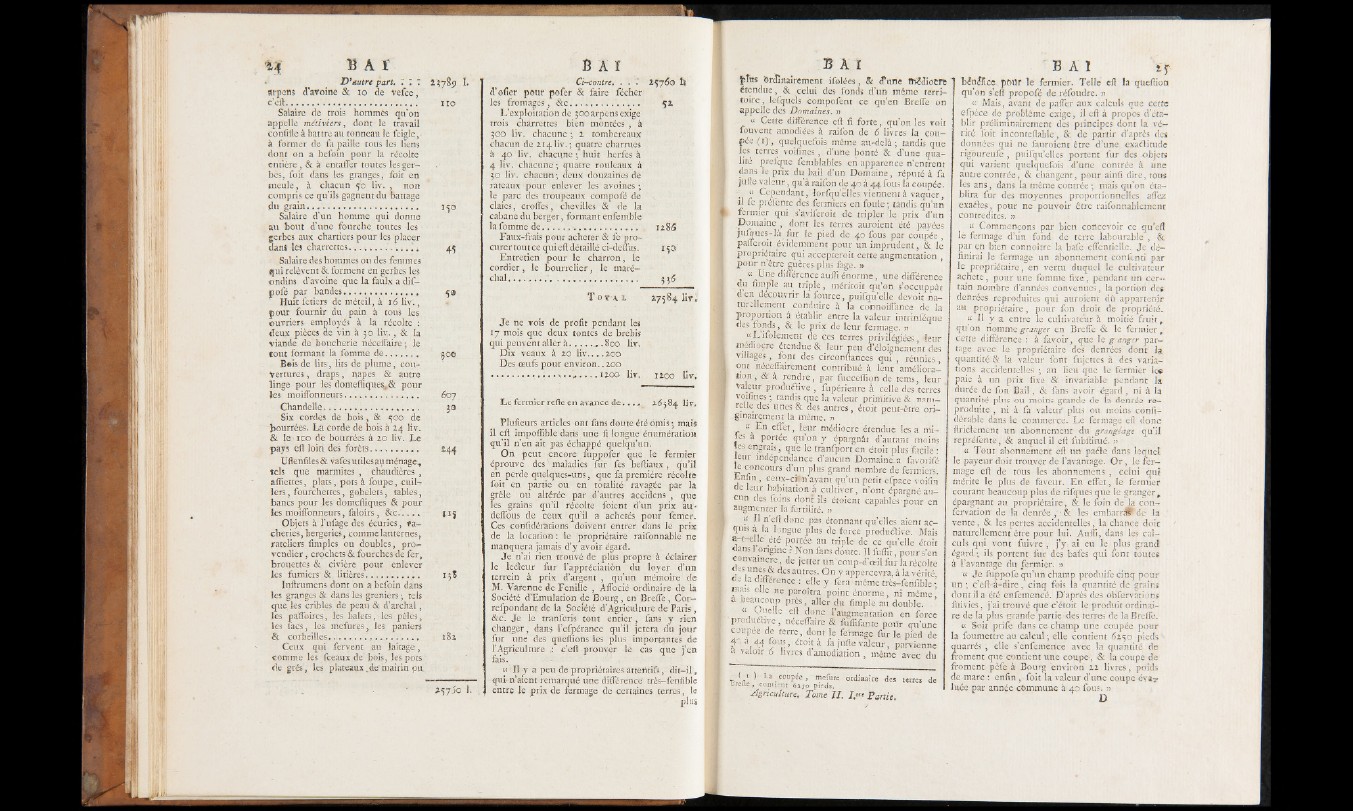 24 BAI
D'autre part. . . . 23789 l.
arpens d'avoine & 10 de vesce,
c'est........................ 110
Salaire de trois hommes qu'on
appelle métiviers, dont le travail
consiste à battre au tonneau le seigle,
à former de sa paille tous les liens
dont on a besoin pour la récolte
entière, & à entasser toutes les ger-
bes, soit dans les granges, soit en
meule, à chacun 50 liv., non
compris ce qu'ils gagnent du battage
du grain..................... 150
Salaire d'un homme qui donne
au bout d'une fourche toutes les
gerbes aux chartiers pour les placer
dans les charrettes............. 45
Salaire des hommes ou des femmes
qui relèvent & forment en gerbes les
ondins d'avoine que la faulx a dis-
posé par bandes............... 50
Huit setiers de méteil, à 16 liv.,
pour fournir du pain à tous les
ouvriers employés à la récolte :
deux pièces de vin à 30 liv., & la
viande de boucherie nécessaire; le
tout formant la somme de....... 300
Bois de lits, lits de plume, cou-
vertures, draps, napes & autre
linge pour les domestiques, & pour
les moissonneurs.............. 607
Chandelle................... 30
Six cordes de bois, & 500 de
bourrées. La corde de bois à 24 liv.
& le 100 de bourrées à 20 liv. Le
pays est loin des forêts.......... 244
Ustensiles & vases utiles au ménage,
tels que marmites, chaudières,
assiettes, plats, pots à soupe, cuil-
lers, fourchettes, gobelets, tables,
bancs pour les domestiques & pour
les moissonneurs, saloirs, &c..... 115
Objets à l'usage des écuries, va-
cheries, bergeries, comme lanternes,
rateliers simples ou doubles, pro-
vendier, crochets & fourches de fer,
brouettes & civière pour enlever
les fumiers & litières........... 138
Instrumens dont on a besoin dans
les granges & dans les greniers; tels
que les cribles de peau & d'archal,
les passoires, les balets, les pèles,
les sacs, les mesures, les paniers
& corbeilles.................. 182
Ceux qui servent au laitage,
comme les sceaux de bois, les pots
de grès, les plateaux de mairin ou
25760 l.
BAI
Ci-contre. . . . 25760 l.
d'osier pour poser & faire sécher
les fromages, &c.............. 52
L'exploitation de 300 arpens exige
trois charrettes bien montées, à
300 liv. chacune; 2 tombereaux
chacun de 214 liv.; quatre charrues
à 40 liv. chacune; huit herses à
4 liv. chacune; quatre rouleaux à
30 liv. chacun; deux douzaines de
rateaux pour enlever les avoines;
le parc des troupeaux composé de
claies, crosses, chevilles & de la
cabane du berger, formant ensemble
la somme de.................. 1286
Faux-frais pour acheter & se pro-
curer tout ce qui est détaillé ci-dessus. 150
Entretien pour le charron, le
cordier, le bourrelier, le maré-
chal......................... 336
TOTAL 27584 liv.
Je ne vois de profit pendant les
17 mois que deux tontes de brebis
qui peuvent aller à........800 liv.
Dix veaux à 20 liv....200
Des œufs pour environ..200
....................1200 liv. 1200 liv.
Le fermier reste en avance de.... 26384 liv.
Plusieurs articles ont sans doute été omis; mais
il est impossible dans une si longue énumération
qu'il n'en ait pas échappé quelqu'un.
On peut encore supposer que le fermier
éprouve des maladies sur ses bestiaux, qu'il
en perde quelques-uns, que sa première récolte
soit en partie ou en totalité ravagée par la
grêle ou altérée par d'autres accidens, que
les grains qu'il récolte soient d'un prix au-
dessous de ceux qu'il a achetés pour semer.
Ces considérations doivent entrer dans le prix
de la location: le propriétaire raisonnable ne
manquera jamais d'y avoir égard.
Je n'ai rien trouvé de plus propre à éclairer
le lecteur sur l'appréciation du loyer d'un
terrein à prix d'argent, qu'un mémoire de
M. Varenne de Fenille, Associé ordinaire de la
Société d'Emulation de Bourg, en Bresse, Cor-
respondant de la Société d'Agriculture de Paris,
&c. Je le tranferis tout entier, sans y rien
changer, dans l'espérance qu'il jetera du jour
sur une des questions les plus importantes de
l'Agriculture : c'est prouver le cas que j'en
fais.
« Il y a peu de propriétaires attentifs, dit-il,
qui n'aient remarqué une différence très-sensible
entre le prix de fermage de certaines terres, le
plus
BAI
plus ordinairement isolées, & d'une médiocre
étendue, & celui des fonds d'un même terri-
toire, lesquels composent ce qu'en Bresse on
appelle des Domaines. »
« Cette différence est si forte, qu'on les voit
souvent amodiées à raison de 6 livres la cou-
pée (1), quelquefois même au-delà; tandis que
les terres voisines, d'une bonté & d'une qua-
lité presque semblables en apparence n'entrent
dans le prix du bail d'un Domaine, réputé à sa
juste valeur, qu'à raison de 40 à 44 sous la coupée.
« Cependant, lorsqu'elles viennent à vaquer,
il se présente des fermiers en foule; tandis qu'un
fermier qui s'aviseroit de tripler le prix d'un
Domaine, dont les terres auroient été payées
jusques-là sur le pied de 40 sous par coupée,
passeroit évidemment pour un imprudent, & le
propriétaire qui accepteroit cette augmentation,
pour n'être guères plus sage. »
« Une différence aussi énorme, une différence
du simple au triple, méritoit qu'on s'occupât
d'en découvrir la source, puisqu'elle devoit na-
turellement conduire à la connoissance de la
proportion à établir entre la valeur intrinséque
des fonds, & le prix de leur fermage. »
« L'isolement de ces terres privilégiées, leur
médiocre étendue & leur peu d'éloignement des
villages, sont des circonstances qui, réunies,
ont nécessairement contribué à leur améliora-
tion, & à rendre, par succession de tems, leur
valeur productive, supérieure à celle des terres
voisines; tandis que la valeur primitive & natu-
relle des unes & des autres, étoit peut-être ori-
ginairement la même. »
« En effet, leur médiocre étendue les a mi-
ses à portée qu'on y épargnât d'autant moins
les engrais, que le transport en étoit plus facile:
leur indépendance d'aucun Domaine a favorisé
le concours d'un plus grand nombre de fermiers.
Enfin, ceux-ci n'ayant qu'un petit espace voisin
de leur habitation à cultiver, n'ont épargné au-
cun des soins dont ils étoient capables pour en
augmenter la fertilité. »
« Il n'est donc pas étonnant qu'elles aient ac-
quis à la longue plus de force productive. Mais
a-t-elle été portée au triple de ce qu'elle étoit
dans l'origine? Non sans doute. Il suffit, pour s'en
convaincre, de jetter un coup-d'œil sur la récolte
des unes & des autres. On y appercevra, à la vérité,
de la différence: elle y sera même très-sensible;
mais elle ne paroîtra point énorme, ni même,
à beaucoup près, aller du simple au double.
« Quelle est donc l'augmentation en force
productive, nécessaire & suffisante pour qu'une
coupée de terre, dont le fermage sur le pied de
40 à 44 sous, étoit à sa juste valeur, parvienne
à valoir 6 livres d'amodiation, même avec du
(1) La coupée, mesure ordinaire des terres de
Bresse, contient 6250 pieds.
Agriculture. Tome II. I.ere Partie.
BAI 25
bénéfice pour le fermier. Telle est la question
qu'on s'est proposé de résoudre. »
« Mais, avant de passer aux calculs que cette
espèce de problême exige, il est à propos d'éta-
blir préliminairement des principes dont la vé-
rité soit incontestable, & de partir d'après des
données qui ne sauroient être d'une exactitude
rigoureuse, puisqu'elles portent sur des objets
qui varient quelquefois d'une contrée à une
autre contrée, & changent, pour ainsi dire, tous
les ans, dans la même contrée; mais qu'on éta-
blira sur des moyennes proportionnelles assez
exactes, pour ne pouvoir être raisonnablement
contredites. »
« Commençons par bien concevoir ce qu'est
le fermage d'un fond de terre labourable, &
par en bien connoître la base essentielle. Je dé-
finirai le fermage un abonnement consenti par
le propriétaire, en vertu duquel le cultivateur
achete, pour une somme fixe, pendant un cer-
tain nombre d'années convenues, la portion des
denrées reproduites qui auroient dû appartenir
au propriétaire, pour son droit de propriété.
« Il y a entre le cultivateur à moitié fruit,
qu'on nomme granger en Bresse & le fermier,
cette différence: à savoir, que le granger par-
tage avec le propriétaire des denrées dont la
quantité & la valeur sont sujettes à des varia-
tions accidentelles; au lieu que le fermier les
paie à un prix fixe & invariable pendant la
durée de son Bail, & sans avoir égard, ni à la
quantité plus ou moins grande de la denrée re-
produite, ni à sa valeur plus ou moins consi-
dérable dans le commerce. Le fermage est donc
strictement un abonnement du grangéage qu'il
représente, & auquel il est substitué. »
« Tout abonnement est un pacte dans lequel
le payeur doit trouver de l'avantage. Or, le fer-
mage est de tous les abonnemens, celui qui
mérite le plus de faveur. En effet, le fermier
courant beaucoup plus de risques que le granger,
épargnant au propriétaire, & le soin de la con-
servation de la denrée, & les embarras de la
vente, & les pertes accidentelles, la chance doit
naturellement être pour lui. Aussi, dans les cal-
culs qui vont suivre, j'y ai eu le plus grand
égard; ils portent sur des bases qui sont toutes
à l'avantage du fermier. »
« Je suppose qu'un champ produise cinq pour
un; c'est-à-dire, cinq fois la quantité de grains
dont il a été ensemencé. D'après des observations
suivies, j'ai trouvé que c'étoit le produit ordinai-
re de la plus grande partie des terres de la Bresse.
« Soit prise dans ce champ une coupée pour
la soumettre au calcul; elle contient 6250 pieds
quarrés, elle s'ensemence avec la quantité de
froment que contient une coupe, & la coupe de
froment pèse à Bourg environ 22 livres, poids
de marc: enfin, soit la valeur d'une coupe éva-
luée par année commune à 40 sous. »
D